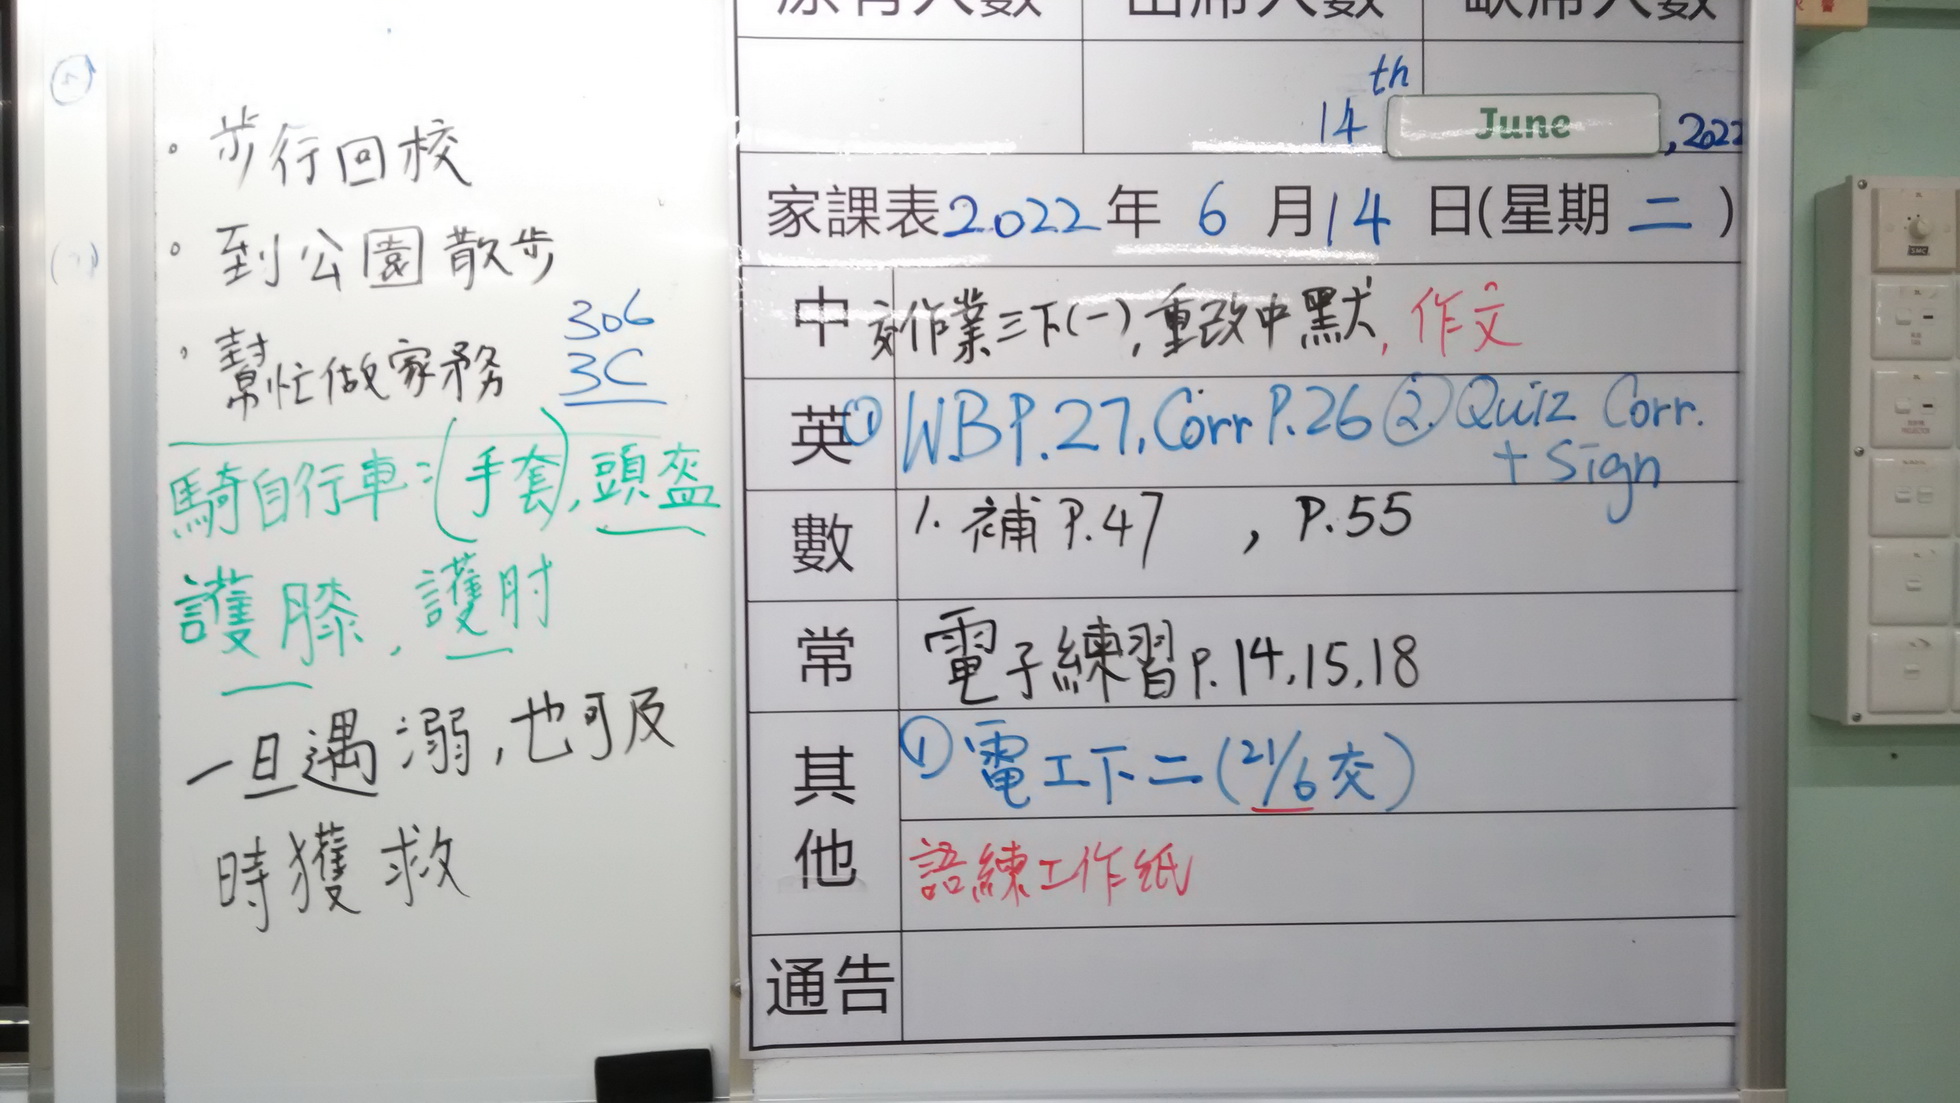 步行回校
到公園散步
幫忙做家務
306
3C
騎自行車:(手套),頭盔
護膝,護肘
一旦遇溺,也可及
時獲救
原有人數 出席人數 缺席人數
14th June, 2022
家課表2022年 6 月14 日(星期 二 )
中 交作業三下(一),重改中默,作文
英 ① W.B P.27, Corr P.26 ② Quiz Corr.
+ Sign
數 1. 補 P.47 , P.55
常 電子練習 P.14,15,18
其他 ① 電工下二(21/6交)
語練工作紙
通告